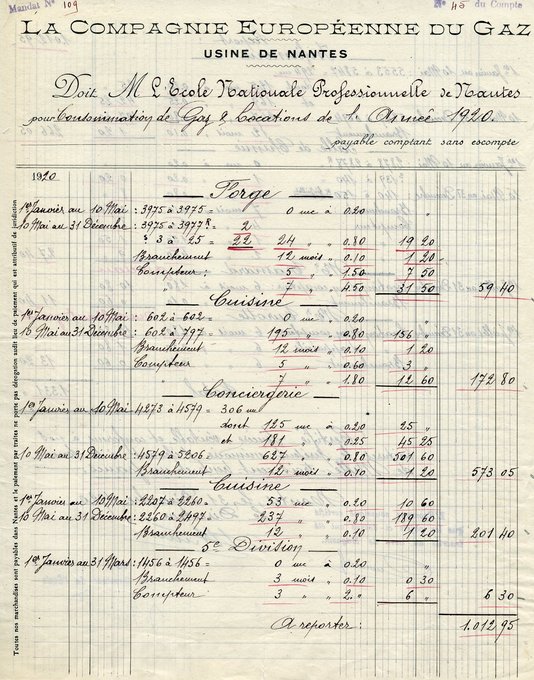 Mandat Nº 109
Nº 45 du Compte
LA COMPAGNIE EUROPÉENNE DU GAZ
USINE DE NANTES
Doit M L'Ecole Nationale Professionnelle de Nantes
pour Consommation de Gaz & Locations de l'Année 1920.
payable comptant sans escompte
1920
Forge
1er Janvier au 10 Mai : 3975 à 3975 = 0 mc à 0.20 "
10 Mai au 31 Décembre : 3975 à 3977 = 2
" 3 à 25 = 22 24 " " 0.80 19 20
Branchement 12 mois " 0.10 1 20
Compteur : 5 " " 1.50 7 50
" 7 " " 4.50 31 50 59 40
Cuisine
1er Janvier au 10 Mai : 602 à 602 = 0 mc à 0.20 "
10 Mai au 31 Décembre : 602 à 797 = 195 " " 0.80 156 "
Branchement 12 mois " 0.10 1 20
Compteur 5 " " 0.60 3 "
" 7 " " 1.80 12 60 172 80
Conciergerie
1er Janvier au 10 Mai : 4273 à 4579 = 306 mc
dont 125 mc à 0.20 25 "
et 181 " à 0.25 45 25
10 Mai au 31 Décembre : 4579 à 5206 627 " " 0.80 501 60
Branchement 12 mois " 0.10 1 20 573 05
Cuisine
1er Janvier au 10 Mai : 2207 à 2260 = 53 mc " 0.20 10 60
10 Mai au 31 Décembre : 2260 à 2497 = 237 " " 0.80 189 60
Branchement 12 " " 0.10 1 20 201 40
5e Division
1er Janvier au 31 Mars : 1456 à 1456 = 0 mc à 0.20 "
Branchement 3 mois " 0.10 0 30
Compteur 3 " " 2. " 6 " 6 30
A reporter : 1.012 95
Toutes nos marchandises sont payables dans Nantes et le paiement par traites ne porte pas dérogation audit lieu de paiement qui est attributif de juridiction